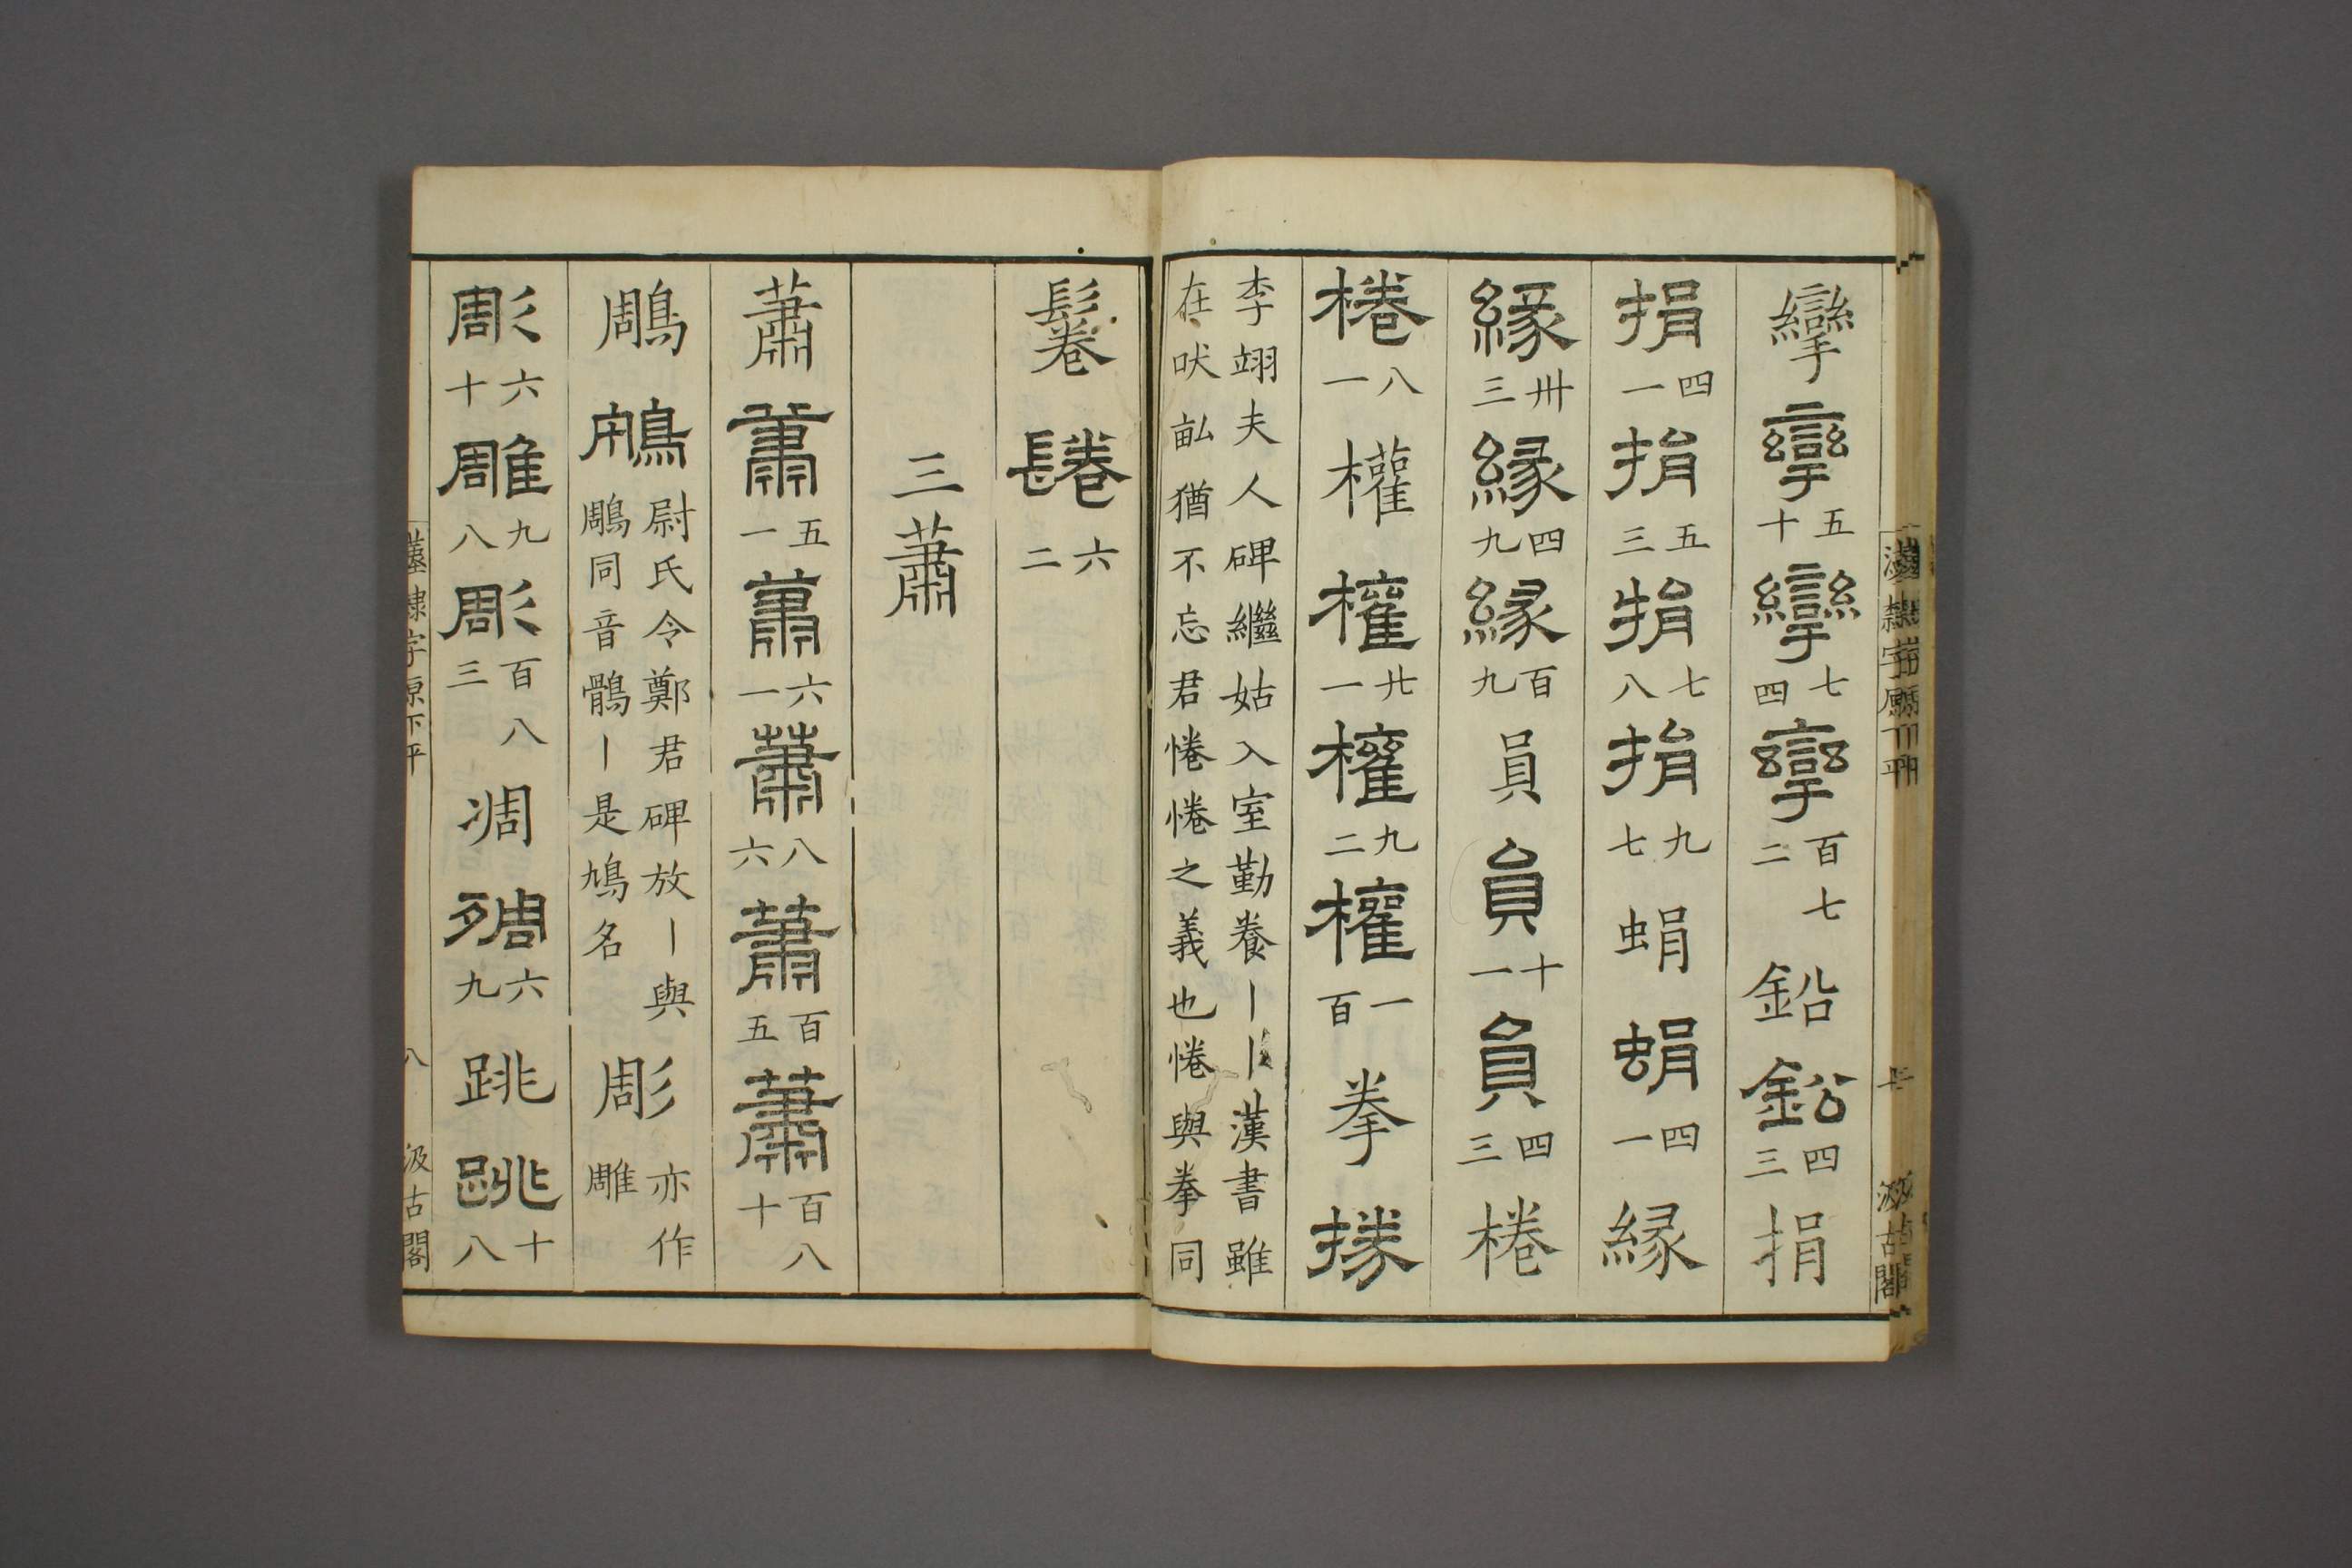 攣 攣 五十 攣 七四 攣 百七二 鉛 鉛 四三 捐
捐 四一 捐 五三 捐 七八 捐 九七 蜎 蜎 四一 緣
緣 卅三 緣 四九 緣 百九 員 員 十一 員 四三 棬
棬 八一 權 權 廿一 權 九二 權 一百 拳 㩲
李翊夫人碑繼姑入室勤養丨丨漢書雖
在吠畝猶不忘君惓惓之義也惓與拳同
鬈 鬈 六二
三蕭
蕭 蕭 五一 蕭 六一 蕭 八六 蕭 百五 蕭 百八十
鵰 鵰 尉氏令鄭君碑放丨與
鵰同音鶻丨是鳩名 彫 亦作
雕
彫 六十 雕 九八 彫 百八三 凋 凋 六九 跳 跳 十八
漢隸字原下平
八
汲古閣